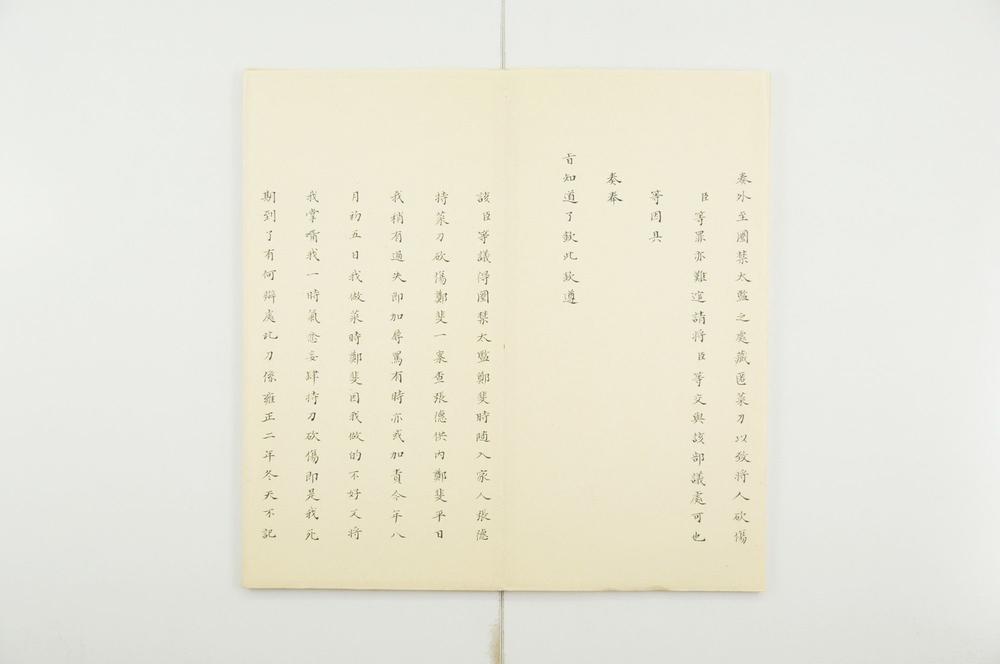 奏外至圈禁太監之處藏匿菜刀以致將人砍傷
臣等罪亦難逭請將臣等交與該部議處可也
等因具
奏奉
旨知道了欽此欽遵
該臣等議得圈禁太監鄭斐時隨入家人張德
持菜刀砍傷鄭斐一案查張德供內鄭斐平日
我稍有過失即加辱罵有時亦或加責今年八
月初五日我做菜時鄭斐因我做的不好又將
我掌嘴我一時氣忿妄肆持刀砍傷即是我死
期到了有何辯處此刀係雍正二年冬天不記